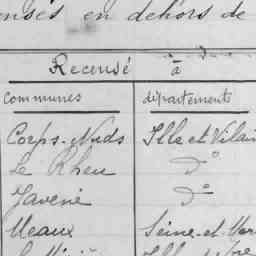 ensés en dehors de
Recensé à
communes départements
Corps-Nuds Ille et Vilai
Le Rheu d°
Javené d°
Meaux Seine-et-Mar